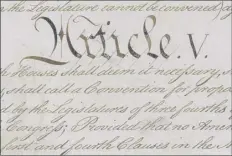 the Legislature cannot be convened)
Article. V.
Houses shall deem it necessary,
shall call a Convention for propo
d by the Legislatures of three fourths
Congress; Provided that no Amen
first and fourth Clauses in the